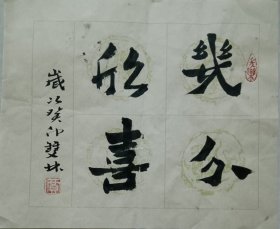 幾分
欣喜
歲次癸卯雙林